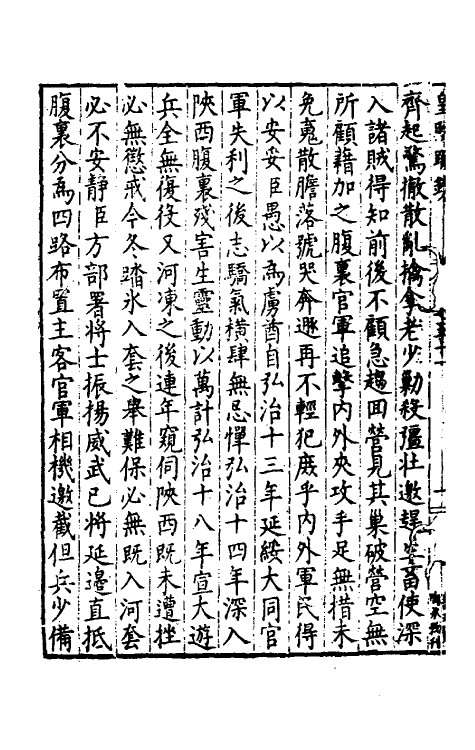 齊起驚徹散亂擒拿老少勦殺彊壯邀趕孳畜使深
入諸賊得知前後不顧急趨回營見其巢破營空無
所顧藉加之腹裏官軍追擊内外夾攻手足無措未
免寃散膽落號哭奔遯再不輕犯庻乎内外軍民得
以安妥臣愚以爲虜酋自弘治十三年延綏大同官
軍失利之後志驕氣横肆無忌憚弘治十四年深入
陜西腹裏殘害生靈動以萬計弘治十八年宣大遊
兵全無復役又河凍之後連年窺伺陜西既未遭挫
必無懲戒今冬踏氷入套之舉難保必無既入河套
必不安静臣方部署將士振揚威武已將延邉直抵
腹裏分爲四路布置主客官軍相機邀截但兵少備